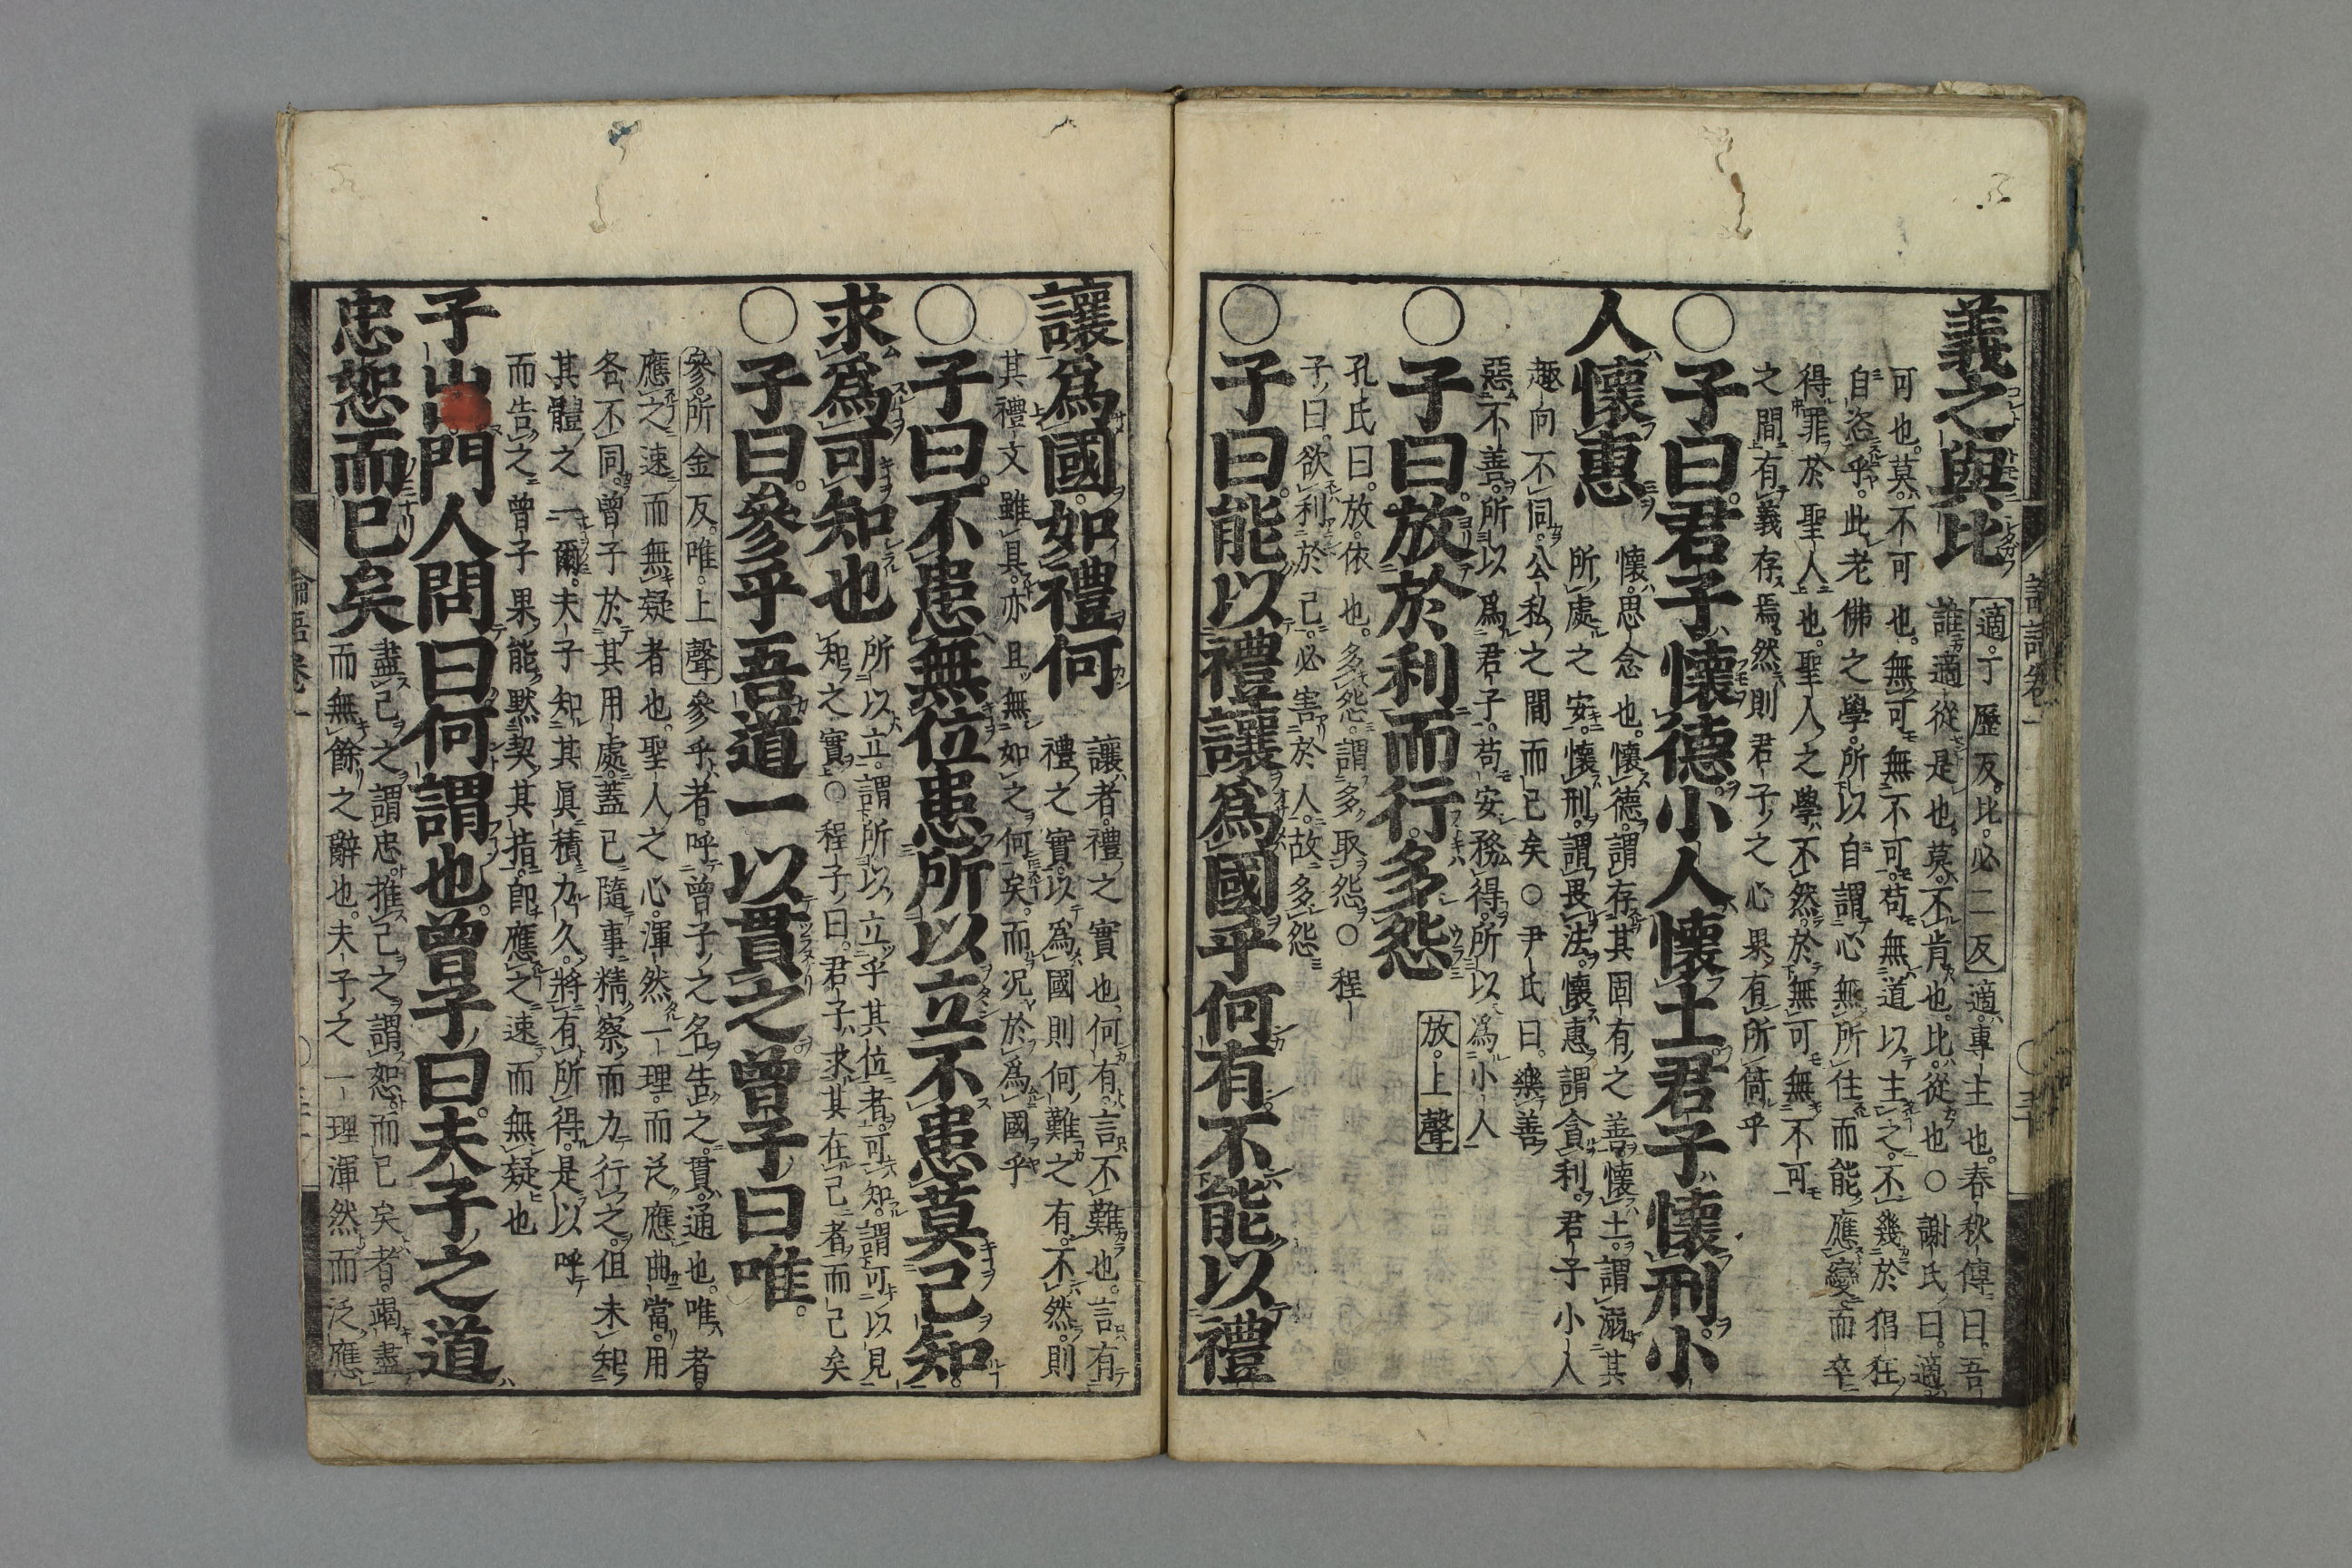 義之與比
適。丁歷反。比。必二反適。專主也。春秋傳曰。吾
誰適從是也。莫。不肯也。比。從也○謝氏曰。適。
可也。莫。不可也。無可無不可。苟無道以主之。不幾於猖狂
自恣乎。此老佛之學。所以自謂心無所住而能應變而卒
得罪於聖人也。聖人之學不然。於無可無不可
之間有義存焉。然則君子之心果有所倚乎
○子曰。君子懷德。小人懷土。君子懷刑。小
人懷惠
懷。思念也。懷德。謂存其固有之善懷土。謂溺其
所處之安。懷刑。謂畏法。懷惠。謂貪利。君子小人
趣向不同。公私之間而已矣○尹氏曰。樂善
惡不善。所以爲君子。苟安務得。所以爲小人
○子曰。放於利而行。多怨
放。上聲
孔氏曰。放。依也。多怨。謂多取怨。○程
子曰。欲利於己。必害於人。故多怨
○子曰。能以禮讓爲國乎何有。不能以禮
讓爲國。如禮何
讓者。禮之實也。何有。言不難也。言有
禮之實。以爲國則何難之有。不然。則
其禮文雖具。亦且無如之何矣。而況於爲國乎
○子曰。不患無位患所以立不患莫己知。
求爲可知也
所以立。謂所以立乎其位者。可知。謂可以見
知之實。○程子曰。君子求其在己者而已矣
○子曰。參乎吾道一以貫之。曾子曰唯。
參。所金反。唯。上聲參乎者。呼曾子之名告之。貫。通也。唯者。
應之速而無疑者也。聖人之心。渾然一理。而泛應曲當。用
各不同。曾子於其用處。蓋已隨事精察而力行之。但未知
其體之一爾。夫子知其眞積力久。將有所得。是以呼
而告之。曾子果能默契其指。卽應之速而無疑也
子出。門人問曰何謂也。曾子曰。夫子之道
忠恕而已矣
盡己之謂忠。推己之謂恕。而已矣者。竭盡
而無餘之辭也。夫子之一理渾然而泛應